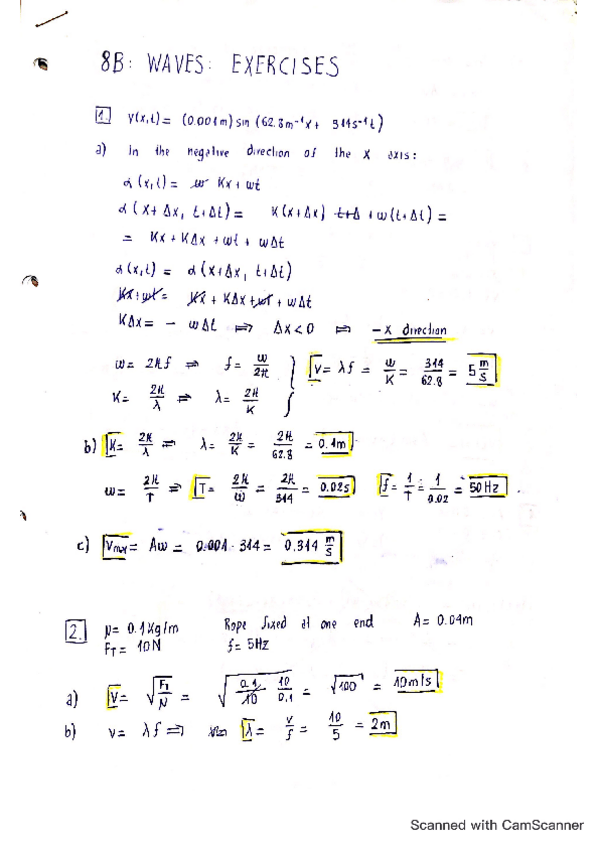 8B: WAVES: EXERCISES
1. y(x,t) = (0.001m) sin (62.8m⁻¹x + 314s⁻¹t)
a) In the negative direction of the x axis:
α(x,t) = Kx + wt
α(x+Δx, t+Δt) = K(x+Δx) + w(t+Δt) =
= Kx + KΔx + wt + wΔt
α(x,t) = α(x+Δx, t+Δt)
Kx+wt = Kx + KΔx + wt + wΔt
KΔx = - wΔt ⇒ Δx<0 ⇒ -x direction
w = 2πf ⇒ f = w/2π } V = λf = w/K = 314/62.8 = 5 m/s
K = 2π/λ ⇒ λ = 2π/K
b) K = 2π/λ ⇒ λ = 2π/K = 2π/62.8 = 0.1m
w = 2π/T ⇒ T = 2π/w = 2π/314 = 0.02s f = 1/T = 1/0.02 = 50Hz.
c) Vmax = Aw = 0.001 · 314 = 0.314 m/s
2. μ = 0.1Kg/m Rope fixed at one end A = 0.04m
FT = 10N f = 5Hz
a) V = √(FT/μ) = √(10/0.1) = √100 = 10m/s
b) v = λf ⇒ λ = v/f = 10/5 = 2m
Scanned with CamScanner